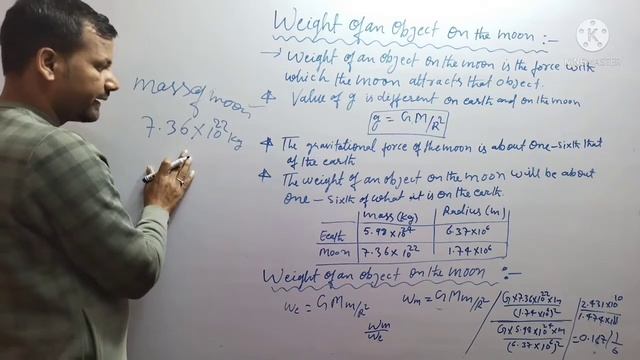 Weight of an Object on the moon :-
→ Weight of an object on the moon is the force with
which the moon attracts that object.
* Value of g is different on earth and on the moon
g = GM/R²
* The gravitational force of the moon is about one-sixth that
of the earth
* The weight of an object on the moon will be about
one-sixth of what it is on the earth.
mass (Kg) Radius (m)
Earth 5.98×10²⁴ 6.37×10⁶
Moon 7.36×10²² 1.74×10⁶
mass of moon -
7.36×10²² kg
Weight of an object on the moon :-
We = GMm/R² Wm = GMm/R²
Wm/We
G×7.36×10²²×m
(1.74×10⁶)²
G×5.98×10²⁴×m
(6.37×10⁶)²
2.431×10¹⁰
1.474×10¹¹
=0.167/1/6
K